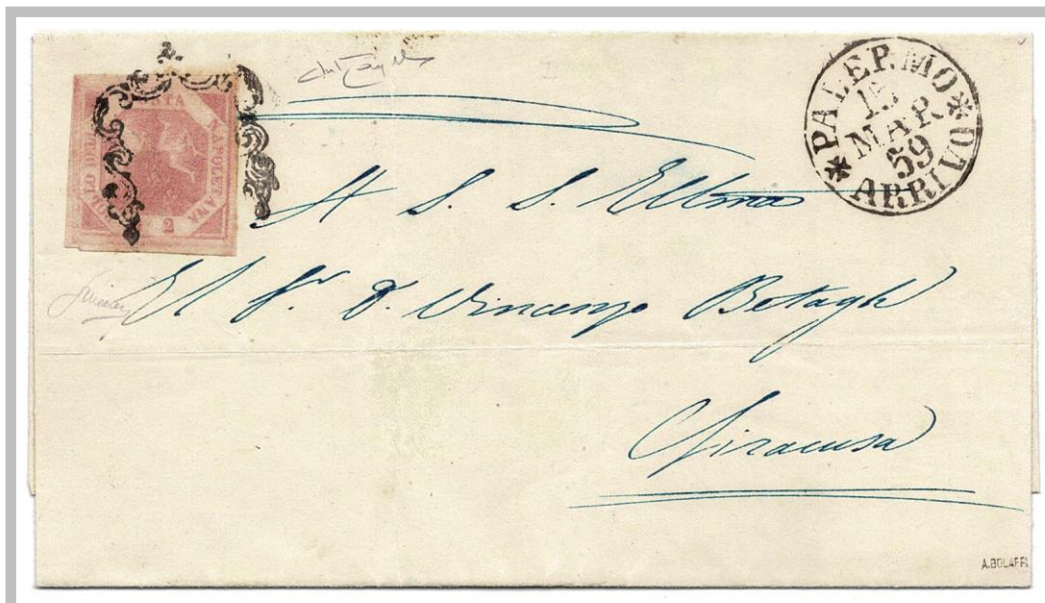 BOLLO DELLA POSTA NAPOLETANA
2
PALERMO * ARRIVO *
MAR
59
A S. S. Ill.ma
Al Sr. D. Vincenzo
Siracusa
A.BOLAFFI